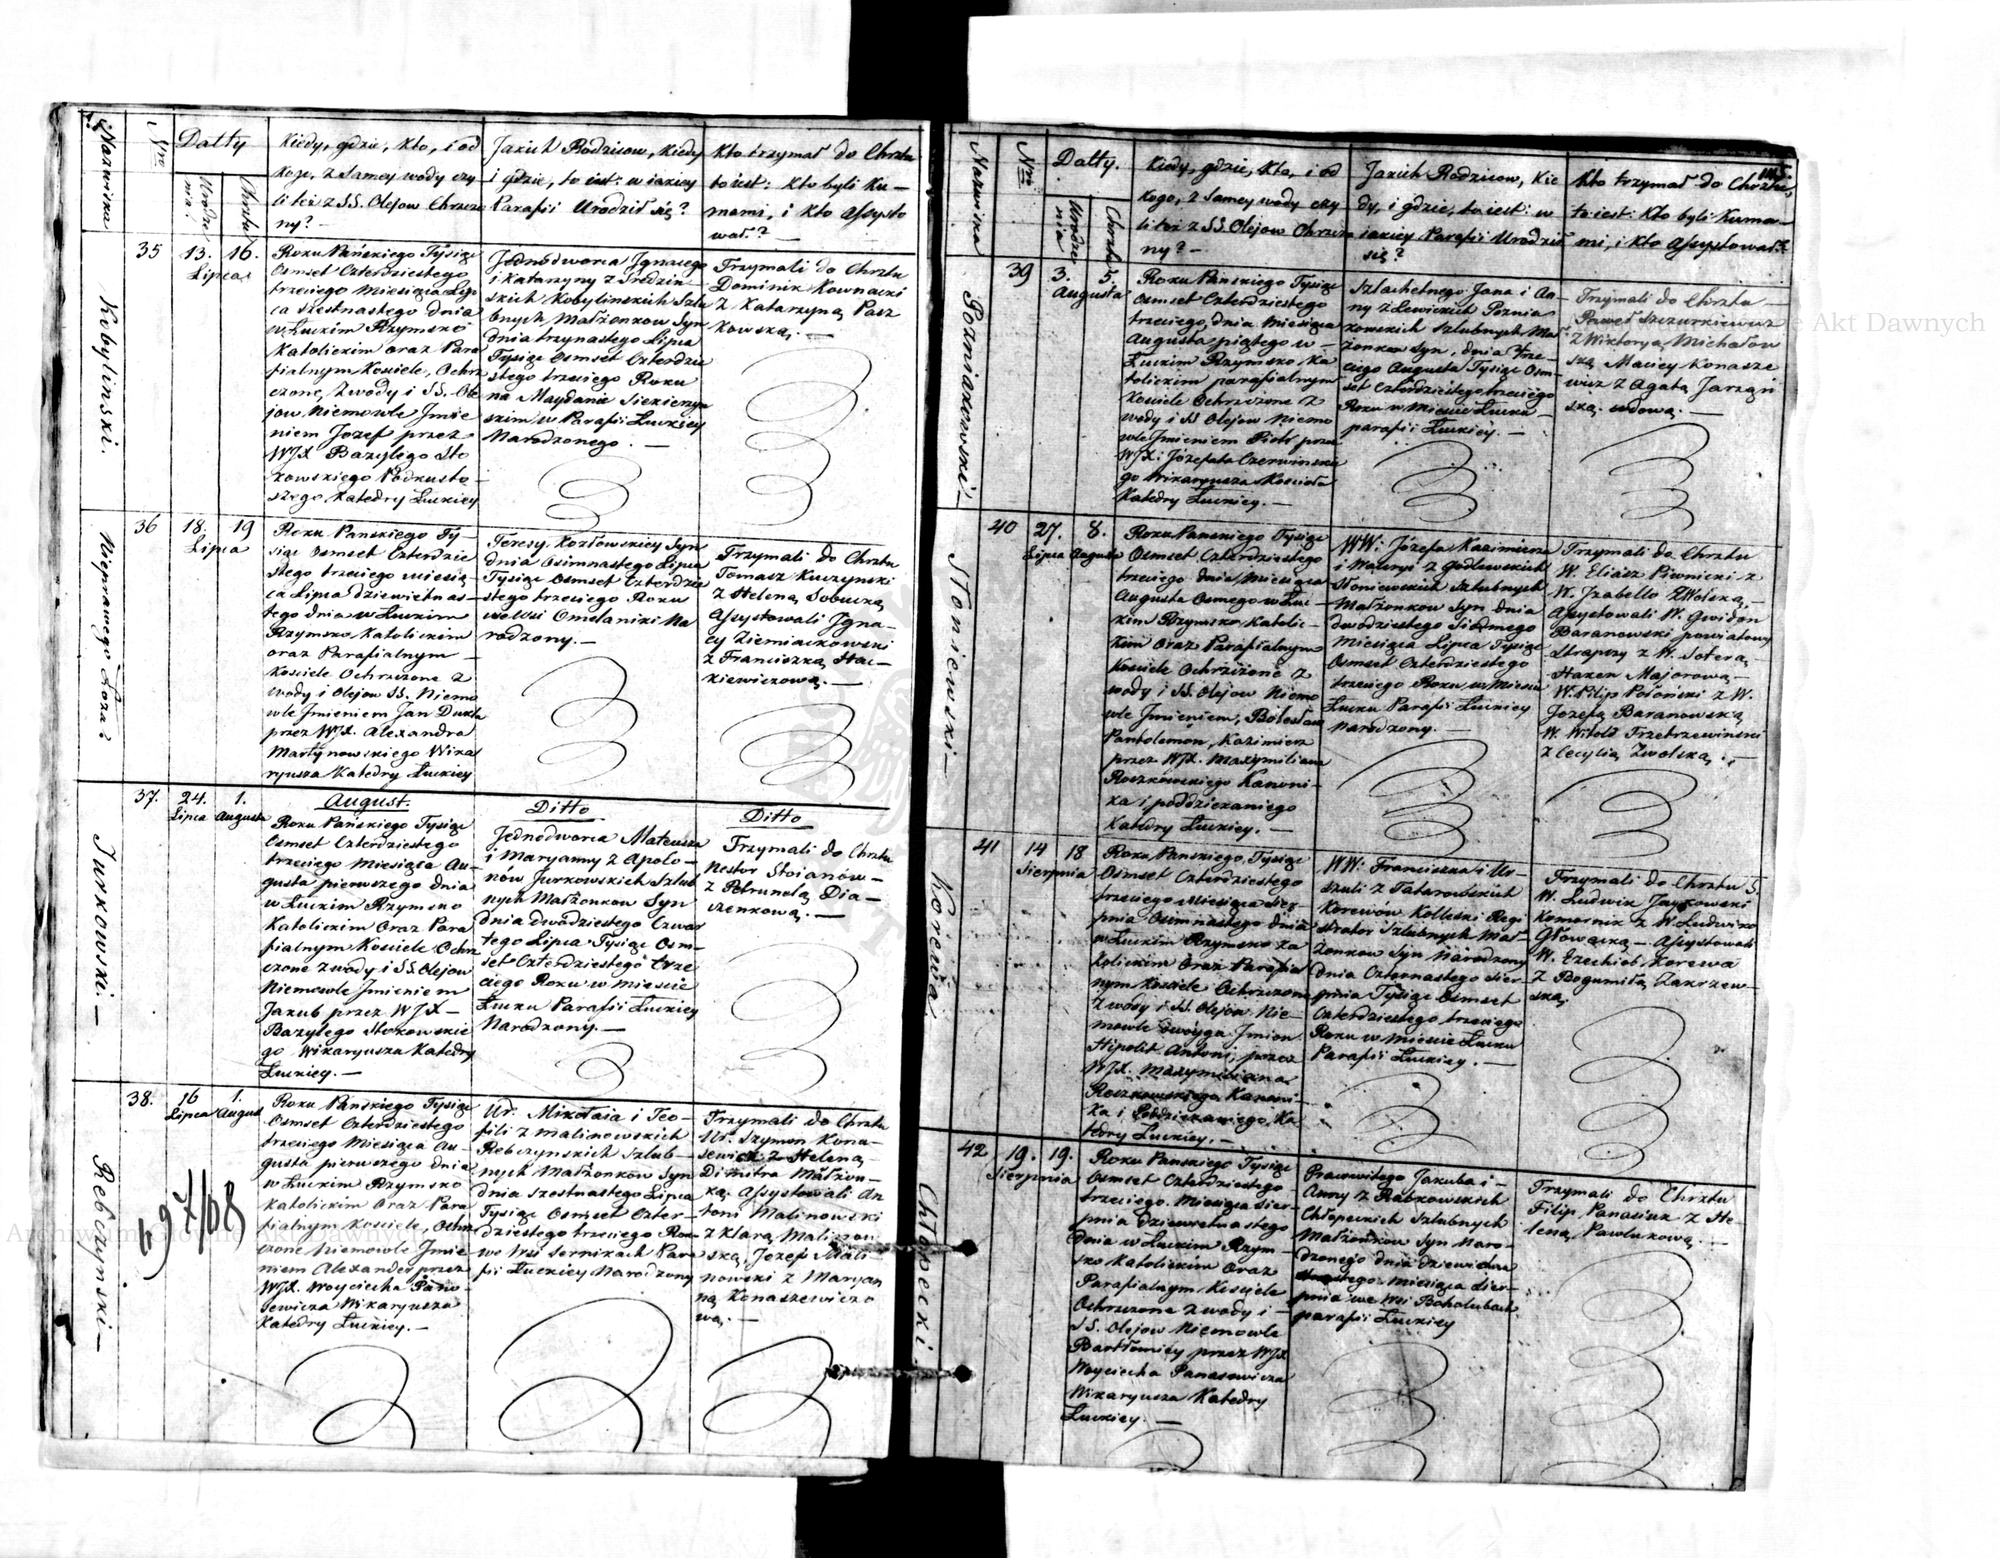 Nazwiska
Nro
Datty
Urodze
nia
Chrztu
Kiedy, gdzie, Kto, i od
Kogo, z Samey wody czy
li też z SS. Olejow Chrzczo
ny? —
Jakich Rodzicow, Kiedy
i gdzie, to iest: w iakiey
Parafii Urodził się?
Kto trzymał do Chrztu
to iest: Kto byli Ku-
mami, i Kto Assysto
wał? —
Kobylinski.
35
13.
16.
Lipca
Roku Pańskiego Tysiąc
Osmset Czterdziestego
trzeciego Miesiąca Lip
ca szestnastego dnia
w Łuckim Rzymsko
Katolickim oraz Para
fialnym Kosciele, Ochrz
czone, z wody i SS. Ole
jow Niemowle Jmie
niem Jozef przez
WJX Bazylego Sto
kowskiego Podkusto-
szego Katedry Łuckiey
Jednodworca Jgnacego
i Katarzyny z Sredzin-
skich Kobylinskich Szlu
bnych Małżonkow Syn
dnia trzynastego Lipca
Tysiąc Osmset Czterdzie
stego trzeciego Roku
na Maydanie Siekierzyn
skim w Parafii Łuckiey
Narodzonego. —
Trzymali do Chrztu
Dominik Kownacki
z Katarzyną Pacz
kowską. —
Nieprawego Łoża?
36
18.
19
Lipca
Roku Panskiego Ty-
siąc Osmset Czterdzie
stego trzeciego miesią-
ca Lipca dziewietnas-
tego dnia w Łuckim
Rzymsko Katolickim
oraz Parafialnym —
Kosciele Ochrzczone z
wody i Olejow SS. Niemo
wle Jmieniem Jan Dukla
przez WJX. Alexandra
Martynowskiego Wika
ryusza Katedry Łuckiey
Teresy Kozłowskiey Syn
dnia Osimnastego Lipca
Tysiąc Osmset Czterdzie
stego trzeciego Roku
we Wsi Omelaniki Na
rodzony. —
Trzymali do Chrztu
Tomasz Kuczynski
z Heleną Sobucką
Assystowali Jgna-
cy Ziemiackowski
z Franciszką Hac-
kiewiczową. —
Jurkowski. —
37.
24.
1.
Lipca Augusta
August.
Roku Pańskiego Tysiąc
Osmset Czterdziestego
trzeciego Miesiąca Au-
gusta pierwszego dnia
w Łuckim Rzymsko
Katolickim Oraz Para
fialnym Kosciele Ochrz
czone z wody i SS. Olejow
Niemowle Jmieniem
Jakub przez WJX —
Bazylego Stokowskie
go Wikaryusza Katedry
Łuckiey. —
Ditto
Jednodworca Mateusza
i Maryanny z Apolo-
nów Jurkowskich Szlub
nych Małżonkow Syn
dnia dwódziestego Czwar
tego Lipca Tysiąc Osm-
set Czterdziestego trze
ciego Roku w Miescie
Łucku Parafii Łuckiey
Narodzony. —
Ditto
Trzymali do Chrztu
Nestor Stoianów —
z Petrunelą Dia-
czenkową. —
Rebczynski —
38.
16
1.
Lipca August
497/08
Roku Pańskiego Tysiąc
Osmset Czterdziestego
trzeciego Miesiąca Au-
gusta pierwszego dnia
w Łuckim Rzymsko
Katolickim Oraz Para
fialnym Kosciele, Ochrz
czone Niemowle Jmie
niem Alexander przez
WJX. Woyciecha Pana-
sewicza Wikaryusza
Katedry Łuckiey. —
Ur: Mikołaia i Teo-
fili z Malinowskich
Rebczynskich Szlub-
nych Małżonkow Syn
dnia Szestnastego Lipca
Tysiąc Osmset Czter-
dziestego trzeciego Ro-
we Wsi Sernikach Para
fii Łuckiey Narodzony
Trzymali do Chrztu
Ur. Szymon Kona-
sewicz z Heleną —
Dimitra Małżon-
ką. Assystowali An
toni Malinowski
z Klarą Malinow
ską, Jozef Mali-
nowski z Maryan
ną Konaszewiczo
wą. —
Nazwiska
Nro
Datty.
Urodze
nia
Chrztu
Kiedy, gdzie, Kto, i od
Kogo, z Samey wody czy
li też z SS. Olejow Chrzczo
ny? —
Jakich Rodzicow, Kie
dy, i gdzie, to iest: w
iakiey Parafii Urodził
się?
Kto trzymał do Chrztu,
to iest: Kto byli Kuma-
mi, i Kto Assystował?
Pozniakowski —
39
3.
5.
Augusta
Roku Panskiego Tysiąc
Osmset Czterdziestego
trzeciego, dnia Miesiąca
Augusta piątego w —
Łuckim Rzymsko Ka
tolickim parafialnym
Kosciele Ochrzczone z
wody i SS Olejow Niemo
wle Jmieniem Piotr przez
WJX: Józefata Czerwinskie
go Wikaryusza Kosciola
Katedry Łuckiey. —
Szlachetnego Jana i An-
ny z Lewickich Poznia
kowskich Szlubnych Mał
żonkow Syn, dnia trze-
ciego Augusta Tysiąc Osm-
set Czterdziestego trzeciego
Roku w Miescie Łucku —
parafii Łuckiey. —
Trzymali do Chrztu —
Paweł Szczurkiewicz
z Wiktoryą Michałow
ską Maciey Konasze
wicz z Agatą Jarząn
ską. wdową. —
Słoniewski —
40
27.
8.
Lipca Augusta
Roku Panskiego Tysiąc
Osmset Czterdziestego
trzeciego dnia Miesiąca
Augusta Osmego w Łuc-
kim Rzymsko Katolic-
kim Oraz Parafialnym
Kosciele Ochrzczone z
wody i SS. Olejow Niemo
wle Jmieniem, Bolesław
Pantolemon, Kazimierz
przez WJX. Maxymiliana
Roszkowskiego Kanoni-
ka i poddziekaniego
Katedry Łuckiey. —
WW: Józefa Kazimierza
i Wawryi z Godlewskich
Słoniewskich Szlubnych
Małżonkow Syn dnia
dwodziestego Siódmego
Miesiąca Lipca Tysiąc
Osmset Czterdziestego
trzeciego Roku, w Miescie
Łucku Parafii Łuckiey
narodzony. —
Trzymali do Chrztu
W. Eliasz Piwnicki z
W. Jzabello Zwolską, —
Assystowali W. Gwidon
Baranowski powiatowy
Strapczy z W. Soterą —
Haxen Majorową —
W. Filip Połonski z W.
Jozefą Baranowską
W. Witold Trzebrzewinski
z Cecylią Zwolską. —
Korewa
41
14
18
Sierpnia
Roku Panskiego, Tysiąc
Osmset Czterdziestego
trzeciego Miesiąca Sier-
pnia Osimnastego dnia
w Łuckim Rzymsko Ka
tolickim Oraz Parafial
nym Kosciele Ochrzczone
z wody i SS. Olejow Nie-
mowle dwoyga Jmion
Hipolit Antoni, przez
WJX. Maxymiliana
Roszkowskiego Kanoni-
ka i Poddziekaniego, Ka
tedry Łuckiey. —
WW: Franciszka i Ur-
szuli z Tatarowskich
Korewów Kolleski Regi
strator Szlubnych Mał-
żonkow Syn Narodzony
dnia Czternastego Sier-
pnia Tysiąc Osmset
Czterdziestego trzeciego
Roku w Miescie Łucku
Parafii Łuckiey. —
Trzymali do Chrztu S.
W. Ludwik Jaykowski
Komornik z W. Ludwiko
Głowacką — Assystowali
W. Ezechiel Korewa
z Bogumiłą Zakrzew-
ską.
Chłopecki.
42
19.
19.
Sierpnia
Roku Panskiego Tysiąc
Osmset Czterdziestego
trzeciego. Miesiąca Sier-
pnia dziewietnastego
dnia w Łuckim Rzym-
sko Katolickim Oraz
Parafialnym Kosciele
Ochrzczone z wody i —
SS. Olejow Niemowle
Bartłomiey przez WJX
Woyciecha Panasewicza
Wikaryusza Katedry
Łuckiey. —
Pracowitego Jakuba i —
Anny z Rabkowskich
Chłopeckich Szlubnych
Małżonkow Syn Naro-
dzonego dnia dziewietna
stego Miesiąca Sier-
pnia we Wsi Boholubach
parafii Łuckiey
Trzymali do Chrztu
Filip Panasiuk z He-
leną Pawlukową. —
Archiwum Główne Akt Dawnych